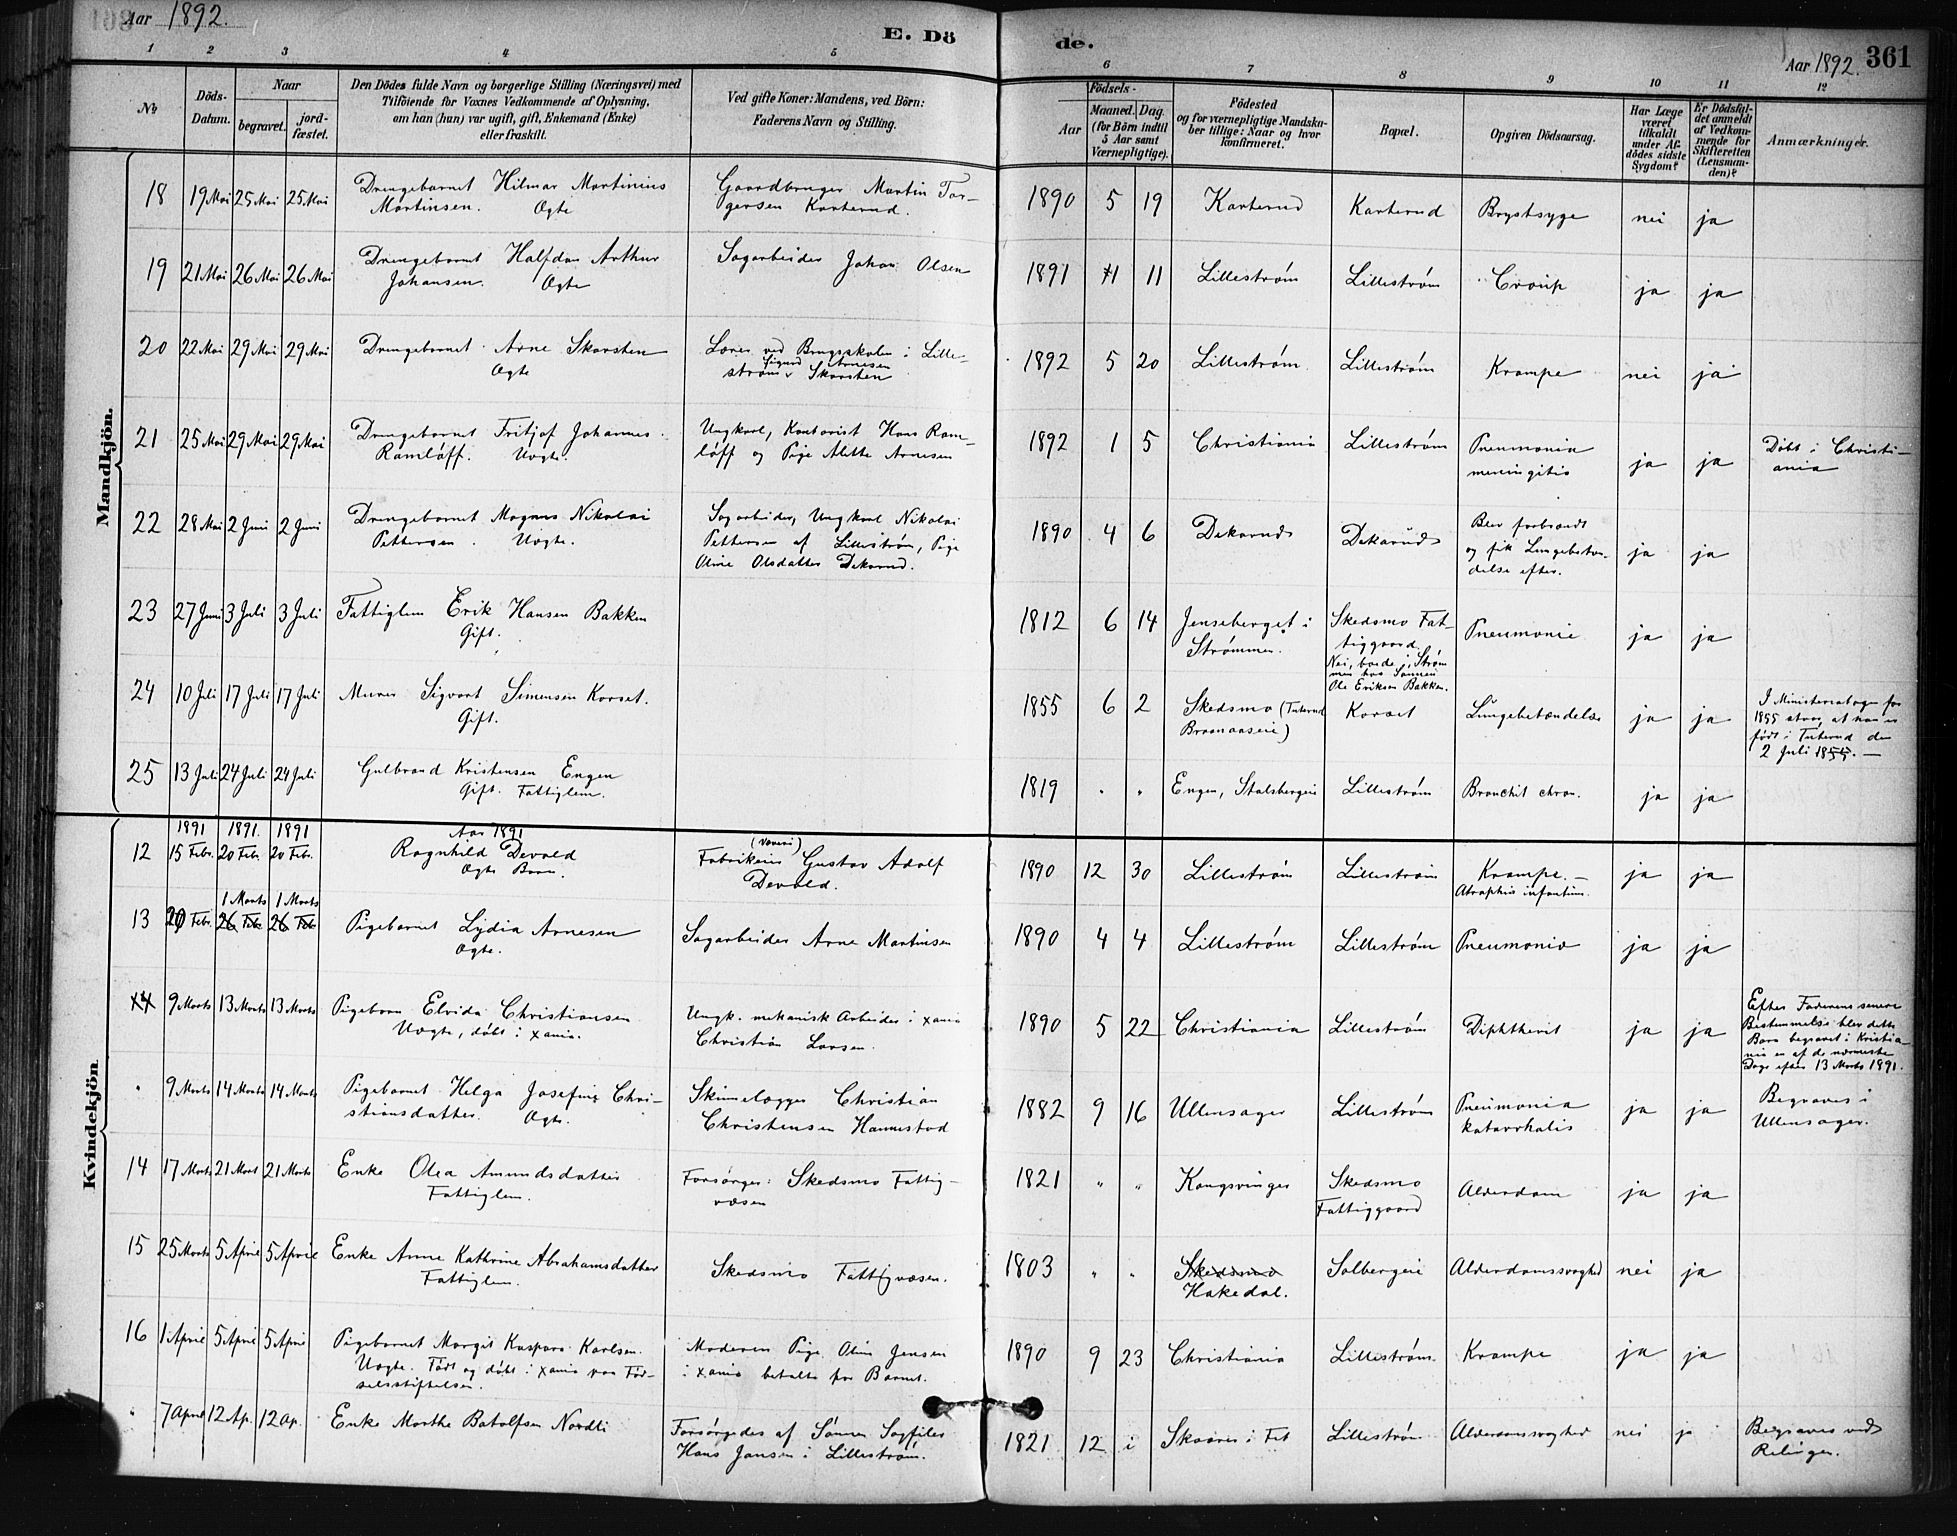 Aar 1892.
E. Dö
de.
Aar 1892.
361
1 2 3 4 5 6 7 8 9 10 11 12
No
Döds-Datum.
Naar
begravet.
jord-fæstet.
Den Dödes fulde Navn og borgerlige Stilling (Næringsvei) med
Tilföiende for Voxnes Vedkommende af Oplysning,
om han (hun) var ugift, gift, Enkemand (Enke)
eller fraskilt.
Ved gifte Koner: Mandens, ved Börn:
Faderens Navn og Stilling.
Födsels-
Aar
Maaned. Dag.
(for Börn indtil
5 Aar samt
Værnepligtige).
Födested
og for værnepligtige Mandska-
ber tillige: Naar og hvor
konfirmeret.
Bopæl.
Opgiven Dödsaarsag.
Har Læge
været
tilkaldt
under Af-
dödes sidste
Sygdom?
Er Dödsfal-
det anmeldt
af Vedkom-
mende for
Skifteretten
(Lensman-
den)?
Anmærkninger.
Mandkjön.
18 19 Mai 25 Mai 25 Mai Drengebarnet Hilmar Martinius Gaardbruger Martin Tor- 1890 5 19 Karterud Karterud Brystsyge nei ja
Martinsen. Ægte gersen Karterud.
19 21 Mai 26 Mai 26 Mai Drengebarnet Halfdan Arthur Sagarbeider Johan Olsen 1891 11 11 Lillestrøm Lillestrøm Croup ja ja
Johansen. Ægte
20 22 Mai 29 Mai 29 Mai Drengebarnet Arne Skarsten Lærer ved Brugsskolen i Lille- 1892 5 20 Lillestrøm Lillestrøm Krampe nei ja
Ægte Sigurd Arnesen
strøm Skarsten
21 25 Mai 29 Mai 29 Mai Drengebarnet Fritjof Johannes Ungkarl, Kontorist Hans Ram- 1892 1 5 Christiania Lillestrøm Pneumonia ja ja Døbt i Christi-
Ramløff. Uægte. løff og Pige Alette Arnesen meningitis ania
22 28 Mai 2 Juni 2 Juni Drengebarnet Magnus Nikolai Sagarbeider, Ungkarl Nikolai 1890 4 6 Dekarud Dekarud Blev forbrændt ja ja
Pettersen. Uægte. Pettersen af Lillestrøm, Pige og fik Lungebetæn-
Oline Olsdatter Dekarud. delse efter.
23 27 Juni 3 Juli 3 Juli Fattiglem Erik Hansen Bakken 1812 6 14 Jenseberget i Skedsmo Fat- Pneumonie ja ja
Gift. Strømmen. tiggaard.
Nei, boede i Strøm
men hos Sønnen
Ole Eriksen Bakken.
24 10 Juli 17 Juli 17 Juli Murer Sigvart Simensen Korset. 1855 6 2 Skedsmo (Tuterud Korset Lungebetændelse ja ja I Ministerialbogen for
Gift. Braanaaseie) 1855 staar, at han er
født i Tuterud den
2 Juli 1855. —
25 13 Juli 24 Juli 24 Juli Gulbrand Kristensen Engen 1819 " " Engen, Stalsbergeie Lillestrøm Bronchit chron. ja ja
Gift. Fattiglem.
Kvindekjön
1891 1891. 1891 Aar 1891
12 15 Febr. 20 Febr. 20 Febr. Ragnhild Devold Fabrikeier (Væveri) Gustav Adolf 1890 12 30 Lillestrøm Lillestrøm Krampe. — ja ja
Ægte Barn. Devold. Atrophia infantum.
1 Marts 1 Marts
13 20 Febr. 26 Feb. 26 Feb. Pigebarnet Lydia Arnesen Sagarbeider Arne Martinsen 1890 4 4 Lillestrøm Lillestrøm Pneumonia ja ja
Ægte.
14 9 Marts 13 Marts 13 Marts Pigebarn Elvida Christiansen Ungk. mekanisk Arbeider i xania 1890 5 22 Christiania Lillestrøm Diphtherit ja ja Efter Faderens senere
Uægte, døbt i xania. Christian Larsen. Bestemmelse blev dette
Barn begravet i Kristia-
nia en af de nærmeste
Dage efter 13 Marts 1891.
" 9 Marts 14 Marts 14 Marts Pigebarnet Helga Josefine Chri- Skinnelægger Christian 1882 9 16 Ullensager Lillestrøm Pneumonia ja ja Begraves i
stiansdatter. Ægte. Christensen Hannestad katarrhalis Ullensager.
14 17 Marts 21 Mart 21 Marts Enke Olea Amundsdatter Forsørges: Skedsmo Fattig- 1821 " " Kongsvinger Skedsmo Alderdom ja ja
Fattiglem. væsen Fattiggaard
15 25 Marts 5 April 5 April Enke Anne Kathrine Abrahamsdatter Skedsmo Fattigvæsen. 1803 " " Skedsmo Solbergeie Alderdomssvaghed nei ja
Fattiglem. Hakedal.
16 1 April 5 April 5 April Pigebarnet Margit Kaspara Karlsen. Moderen Pige Oline Jensen 1890 9 23 Christiania Lillestrøm. Krampe ja ja
Uægte. Født og døbt i xania paa Fød- i xania betalte for Barnet.
selsstiftelsen.
" 7 April 12 Ap. 12 Ap. Enke Marthe Botolfsen Nordli Forsørgedes af Sønnen Sagfiler 1821 12 i Skaarer i Fet Lillestrøm Alderdomssvaghed nei ja Begraves ved
Hans Jansen i Lillestrøm. Relingen.